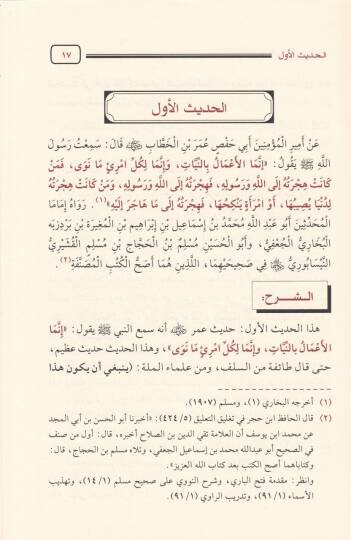 الحديث الأول
١٧
الحديث الأول
عَنْ أَمِيرِ الْمُؤْمِنِينَ أَبِي حَفْصٍ عُمَرَ بْنِ الْخَطَّابِ ﵁ قَالَ: سَمِعْتُ رَسُولَ
اللَّهِ ﷺ يَقُولُ: «إِنَّمَا الأَعْمَالُ بِالنِّيَّاتِ، وَإِنَّمَا لِكُلِّ امْرِئٍ مَا نَوَى، فَمَنْ
كَانَتْ هِجْرَتُهُ إِلَى اللَّهِ وَرَسُولِهِ، فَهِجْرَتُهُ إِلَى اللَّهِ وَرَسُولِهِ، وَمَنْ كَانَتْ هِجْرَتُهُ
لِدُنْيَا يُصِيبُهَا، أَوِ امْرَأَةٍ يَنْكِحُهَا، فَهِجْرَتُهُ إِلَى مَا هَاجَرَ إِلَيْهِ»(١). رَوَاهُ إِمَامَا
الْمُحَدِّثِينَ أَبُو عَبْدِ اللَّهِ مُحَمَّدُ بْنُ إِسْمَاعِيلَ بْنِ إِبْرَاهِيمَ بْنِ الْمُغِيرَةِ بْنِ بَرْدِزبَه
الْبُخَارِيُّ الْجُعْفِيُّ، وَأَبُو الْحُسَيْنِ مُسْلِمُ بْنُ الْحَجَّاجِ بْنِ مُسْلِمٍ الْقُشَيْرِيُّ
النَّيْسَابُورِيُّ ﵄ فِي صَحِيحَيْهِمَا، اللَّذَيْنِ هُمَا أَصَحُّ الْكُتُبِ الْمُصَنَّفَةِ(٢).
الـشـرح:
هذا الحديث الأول: حديث عمر ﵁ أنه سمع النبي ﷺ يقول: «إِنَّمَا
الأَعْمَالُ بِالنِّيَّاتِ، وإِنَّمَا لِكُلِّ امْرِئٍ مَا نَوَى»، وهذا الحديث حديث عظيم،
حتى قال طائفة من السلف، ومن علماء الملة: (ينبغي أن يكون هذا
(١) أخرجه البخاري (١)، ومسلم (١٩٠٧).
(٢) قال الحافظ ابن حجر في تغليق التعليق (٥/ ٤٢٤): «أخبرنا أبو الحسن بن أبي المجد
عن محمد ابن يوسف أن العلامة تقي الدين بن الصلاح أخبره، قال: أول من صنف
في الصحيح أبو عبدالله محمد بن إسماعيل الجعفي، وتلاه مسلم بن الحجاج، قال:
وكتاباهما أصح الكتب بعد كتاب الله العزيز».
وانظر: مقدمة فتح الباري، وشرح النووي على صحيح مسلم (١/ ١٤)، وتهذيب
الأسماء (١/ ٩١)، وتدريب الراوي (١/ ٩١).